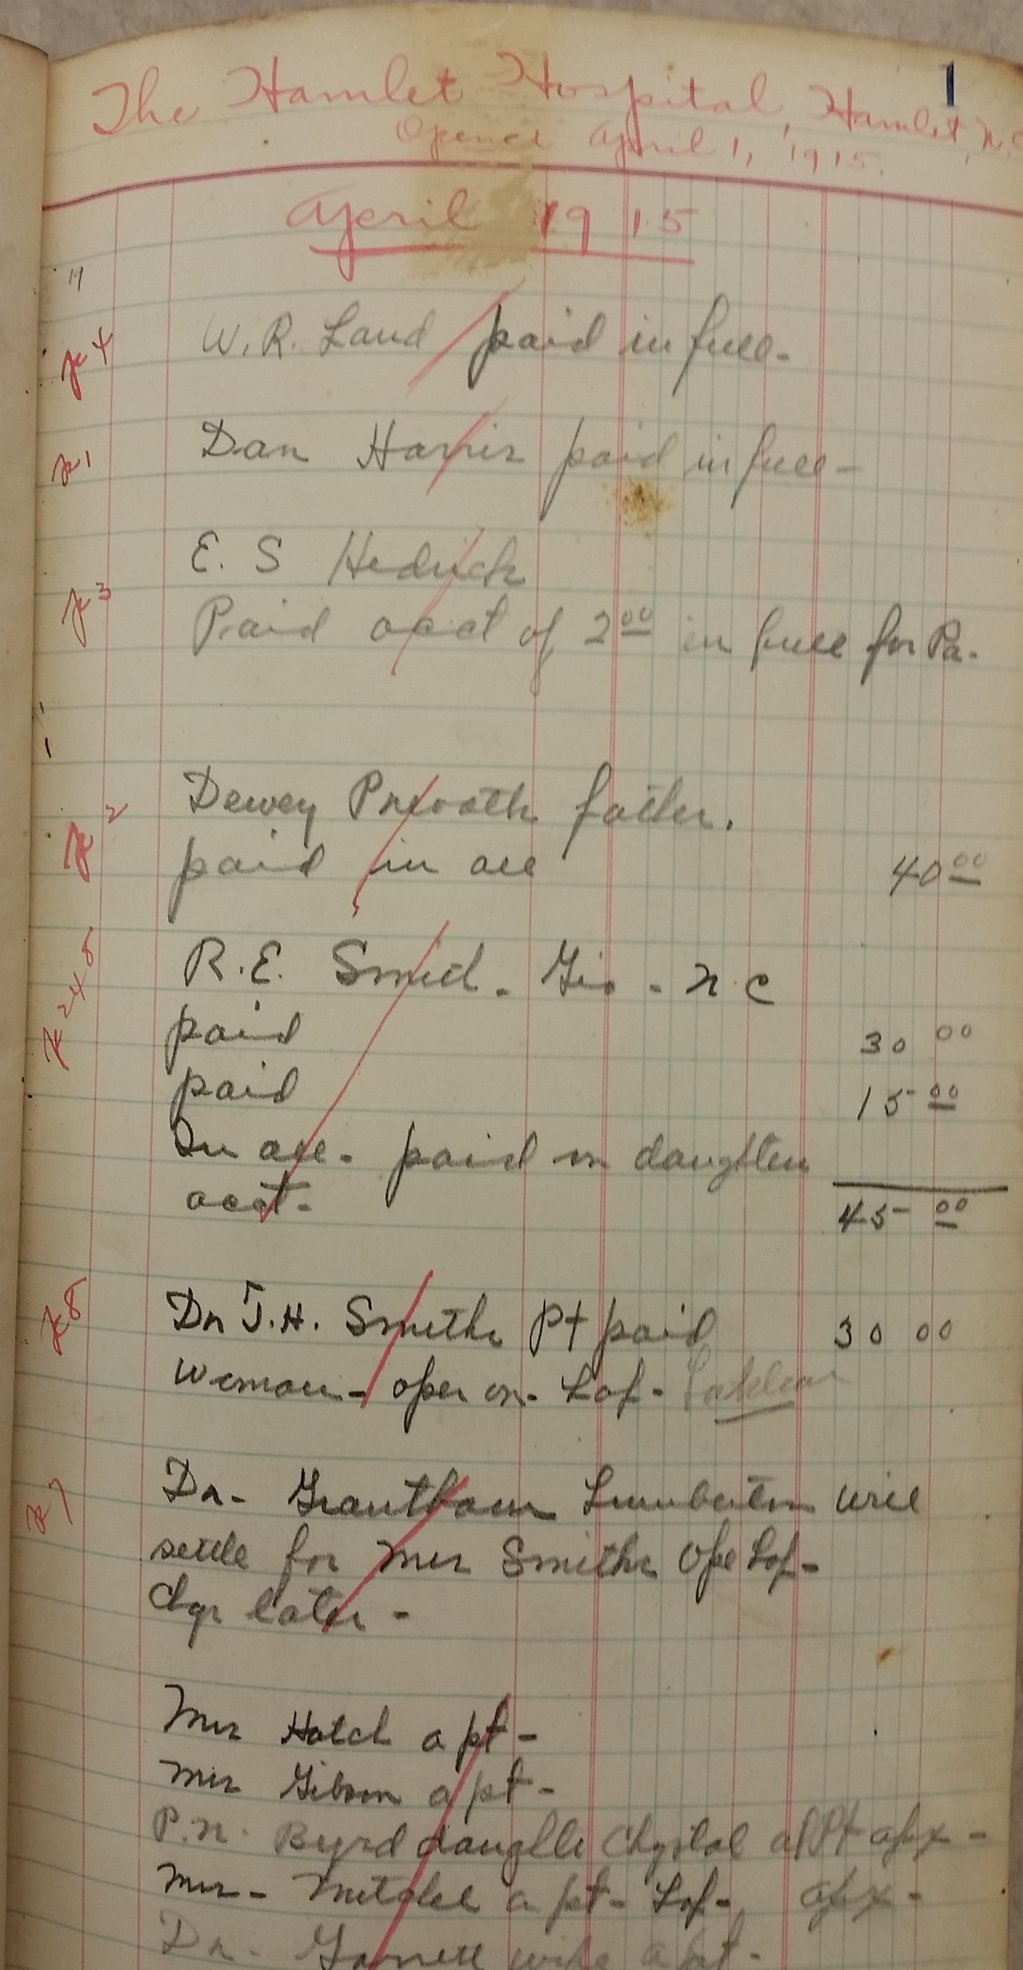 1
The Hamlet Hospital, Hamlet, N.C
Opened April 1, 1915.
April 1915
W. R. Land paid in full -
Dan Harris paid in full -
E. S Hedrick
Paid acct of 2 00 in full for Pa.
Dewey father.
paid in all 40 00
R. E. Smith - Gib - N C
paid 30 00
paid 15 00
In all - paid on daughter
acct - 45 00
Dr J. H. Smith Pt paid 30 00
woman - oper on - Lap -
Dr - Grantham Lumberton will
settle for Mrs Smith Ope Lap -
Chgs later -
Mrs Hatch a pt -
Mrs Gibson a pt -
P. N. Byrd daughter a Pt apx -
Mrs - Mitchel a pt - Lap - apx -
Dr - wife a pt -